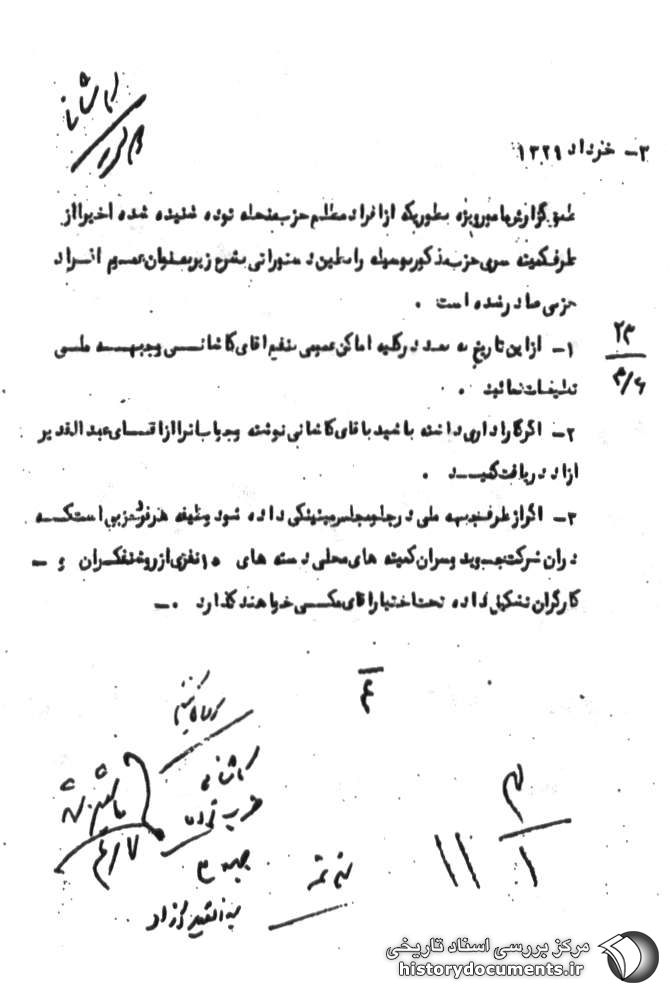 کاشانی
۳- خرداد ۱۳۲۹
طبق گزارش مامور ویژه بطوریکه از افراد مطلع حزب منحله توده شنیده شده اخیرا از
طرف کمیته مرکزی حزب مذکور بوسیله رابطین دستوراتی بشرح زیر بعنوان عموم افراد
حزبی صادر شده است .
۱- از این تاریخ به بعد در کلیه اماکن عمومی بنفع اقای کاشانی و جبهه ملی
تبلیغات نمائید .
۲- اگر کاراداری داشته باشید باقای کاشانی نوشته و جواب انرا از اقای عبدالقدیر
ازاد دریافت کنید .
۳- اگر از طرف جبهه ملی در جلو مجلس میتینگی داده شود وظیفه هر فرد حزبی است که
در ان شرکت جوید و سران کمیته های محلی دسته های ۱۰ نفری از روشنفکران و -
کارگران تشکیل داده تحت اختیار اقای مکی خواهند گذارد .-
۲۳
۳/۶
۴
کاشانی
حزب توده
جبهه م
عبدالقدیر آزاد
۳
۱
۱۱
مرکز بررسی اسناد تاریخی
historydocuments.ir